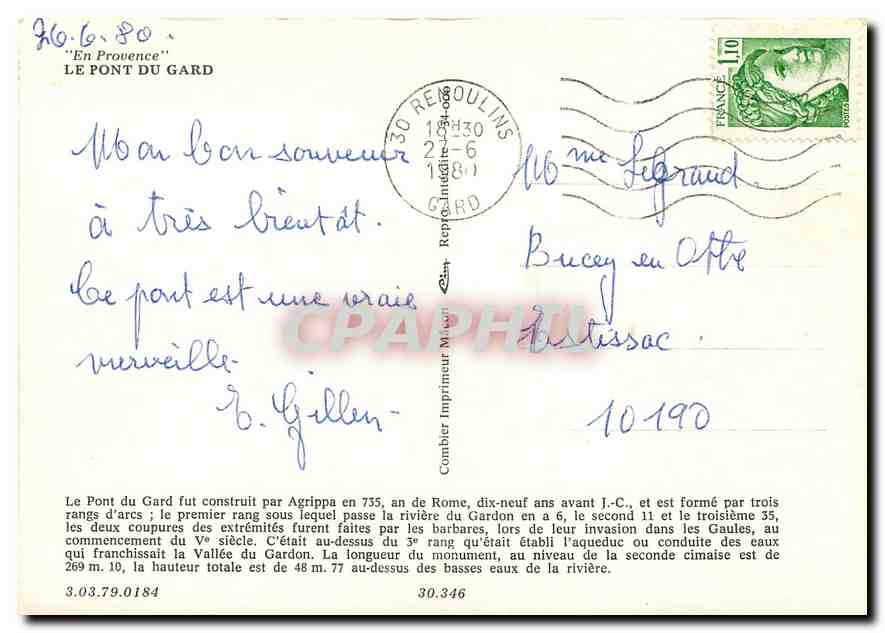 26.6.80.
"En Provence"
LE PONT DU GARD
FRANCE
1,10
POSTES
30 REMOULINS
18H30
27-6
1980
GARD
Mon bon souvenir
à très bientôt.
Ce pont est une vraie
merveille.
E. Gillen
Mme Legrand.
Bucey en Othe
Estissac.
10190
Combier Imprimeur Mâcon Cim Repro. Interdite
CPAPHIL
Le Pont du Gard fut construit par Agrippa en 735, an de Rome, dix-neuf ans avant J.-C., et est formé par trois
rangs d'arcs ; le premier rang sous lequel passe la rivière du Gardon en a 6, le second 11 et le troisième 35,
les deux coupures des extrémités furent faites par les barbares, lors de leur invasion dans les Gaules, au
commencement du Ve siècle. C'était au-dessus du 3e rang qu'était établi l'aqueduc ou conduite des eaux
qui franchissait la Vallée du Gardon. La longueur du monument, au niveau de la seconde cimaise est de
269 m. 10, la hauteur totale est de 48 m. 77 au-dessus des basses eaux de la rivière.
3.03.79.0184
30.346